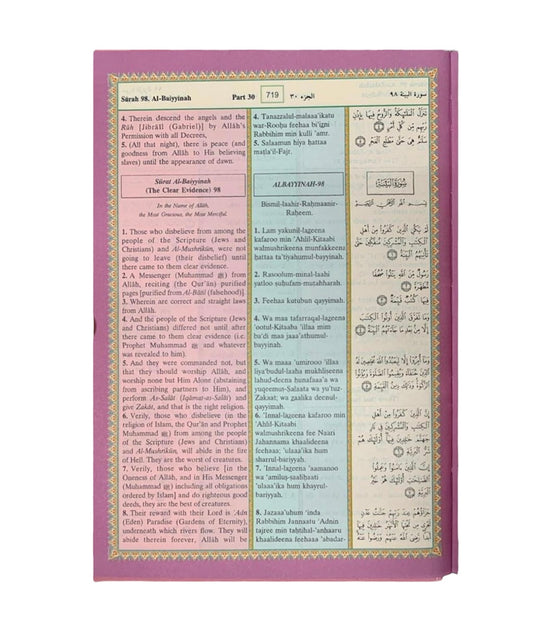 Sûrah 98. Al-Baiyyinah
Part 30
719
الجزء ٣٠
سورة البينة ٩٨
4. Therein descend the angels and the
Rûh [Jibrâîl (Gabriel)] by Allâh's
Permission with all Decrees,
5. (All that night), there is peace (and
goodness from Allâh to His believing
slaves) until the appearance of dawn.
Sûrat Al-Baiyyinah
(The Clear Evidence) 98
In the Name of Allâh,
the Most Gracious, the Most Merciful.
1. Those who disbelieve from among the
people of the Scripture (Jews and
Christians) and Al-Mushrikûn, were not
going to leave (their disbelief) until
there came to them clear evidence.
2. A Messenger (Muhammad ﷺ) from
Allâh, reciting (the Qur'ân) purified
pages [purified from Al-Bâtil (falsehood)].
3. Wherein are correct and straight laws
from Allâh.
4. And the people of the Scripture (Jews
and Christians) differed not until after
there came to them clear evidence (i.e.
Prophet Muhammad ﷺ and whatever
was revealed to him).
5. And they were commanded not, but
that they should worship Allâh, and
worship none but Him Alone (abstaining
from ascribing partners to Him), and
perform As-Salât (Iqâmat-as-Salât) and
give Zakât, and that is the right religion.
6. Verily, those who disbelieve (in the
religion of Islam, the Qur'ân and Prophet
Muhammad ﷺ) from among the people
of the Scripture (Jews and Christians)
and Al-Mushrikûn, will abide in the fire
of Hell. They are the worst of creatures.
7. Verily, those who believe [in the
Oneness of Allâh, and in His Messenger
(Muhammad ﷺ) including all obligations
ordered by Islam] and do righteous good
deeds, they are the best of creatures.
8. Their reward with their Lord is 'Adn
(Eden) Paradise (Gardens of Eternity),
underneath which rivers flow. They will
abide therein forever, Allâh will be
4. Tanazzalul-malaaa'ikatu
war-Roohu feehaa bi'igni
Rabbihim min kulli 'amr.
5. Salaamun hiya hattaa
matla'il-Fajr.
ALBAYYINAH-98
Bismil-laahir-Rahmaanir-
Raheem.
1. Lam yakunil-lageena
kafaroo min 'Ahlil-Kitaabi
walmushrikeena munfakkeena
hattaa ta'tiyahumul-bayyinah.
2. Rasoolum-minal-laahi
yatloo suhufam-mutahharah.
3. Feehaa kutubun qayyimah.
4. Wa maa tafarraqal-lageena
'ootul-Kitaaba 'illaa mim
ba'di maa jaaa'athumul-
bayyinah.
5. Wa maaa 'umirooo 'illaa
liya'budul-laaha mukhliseena
lahud-deena hunafaaa'a wa
yuqeemus-Salaata wa yu'tuz-
Zakaat; wa gaalika deenul-
qayyimah.
6. 'Innal-lageena kafaroo min
'Ahlil-Kitaabi
walmushrikeena fee Naari
Jahannama khaalideena
feehaa; 'ulaaa'ika hum
sharrul-bariyyah.
7. 'Innal-lageena 'aamanoo
wa 'amilus-saalihaati
'ulaaa'ika hum khayrul-
bariyyah.
8. Jazaaa'uhum 'inda
Rabbihim Jannaatu 'Adnin
tajree min tahtihal-'anhaaru
khaalideena feehaaa 'abadar-
تَنَزَّلُ الْمَلَائِكَةُ وَالرُّوحُ فِيهَا بِإِذْنِ
رَبِّهِم مِّن كُلِّ أَمْرٍ ٤
سَلَامٌ هِيَ حَتَّىٰ مَطْلَعِ الْفَجْرِ ٥
سُورَةُ الْبَيِّنَةِ
بِسْمِ اللَّهِ الرَّحْمَٰنِ الرَّحِيمِ
لَمْ يَكُنِ الَّذِينَ كَفَرُوا مِنْ أَهْلِ
الْكِتَابِ وَالْمُشْرِكِينَ مُنفَكِّينَ حَتَّىٰ
تَأْتِيَهُمُ الْبَيِّنَةُ ١
رَسُولٌ مِّنَ اللَّهِ يَتْلُو صُحُفًا
مُّطَهَّرَةً ٢
فِيهَا كُتُبٌ قَيِّمَةٌ ٣
وَمَا تَفَرَّقَ الَّذِينَ أُوتُوا الْكِتَابَ
إِلَّا مِن بَعْدِ مَا جَاءَتْهُمُ الْبَيِّنَةُ ٤
وَمَا أُمِرُوا إِلَّا لِيَعْبُدُوا اللَّهَ مُخْلِصِينَ لَهُ